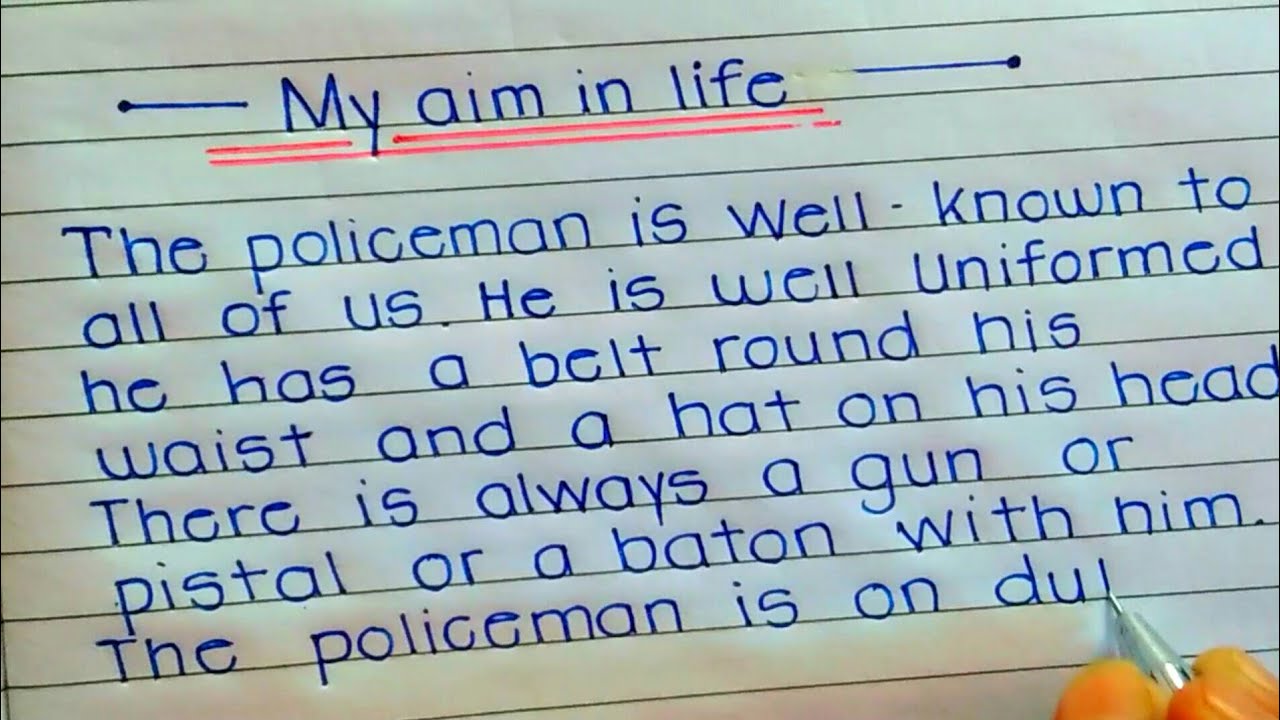 My aim in life
The policeman is well-known to
all of us. He is well uniformed
he has a belt round his
waist and a hat on his head
There is always a gun or
pistal or a baton with him.
The policeman is on du